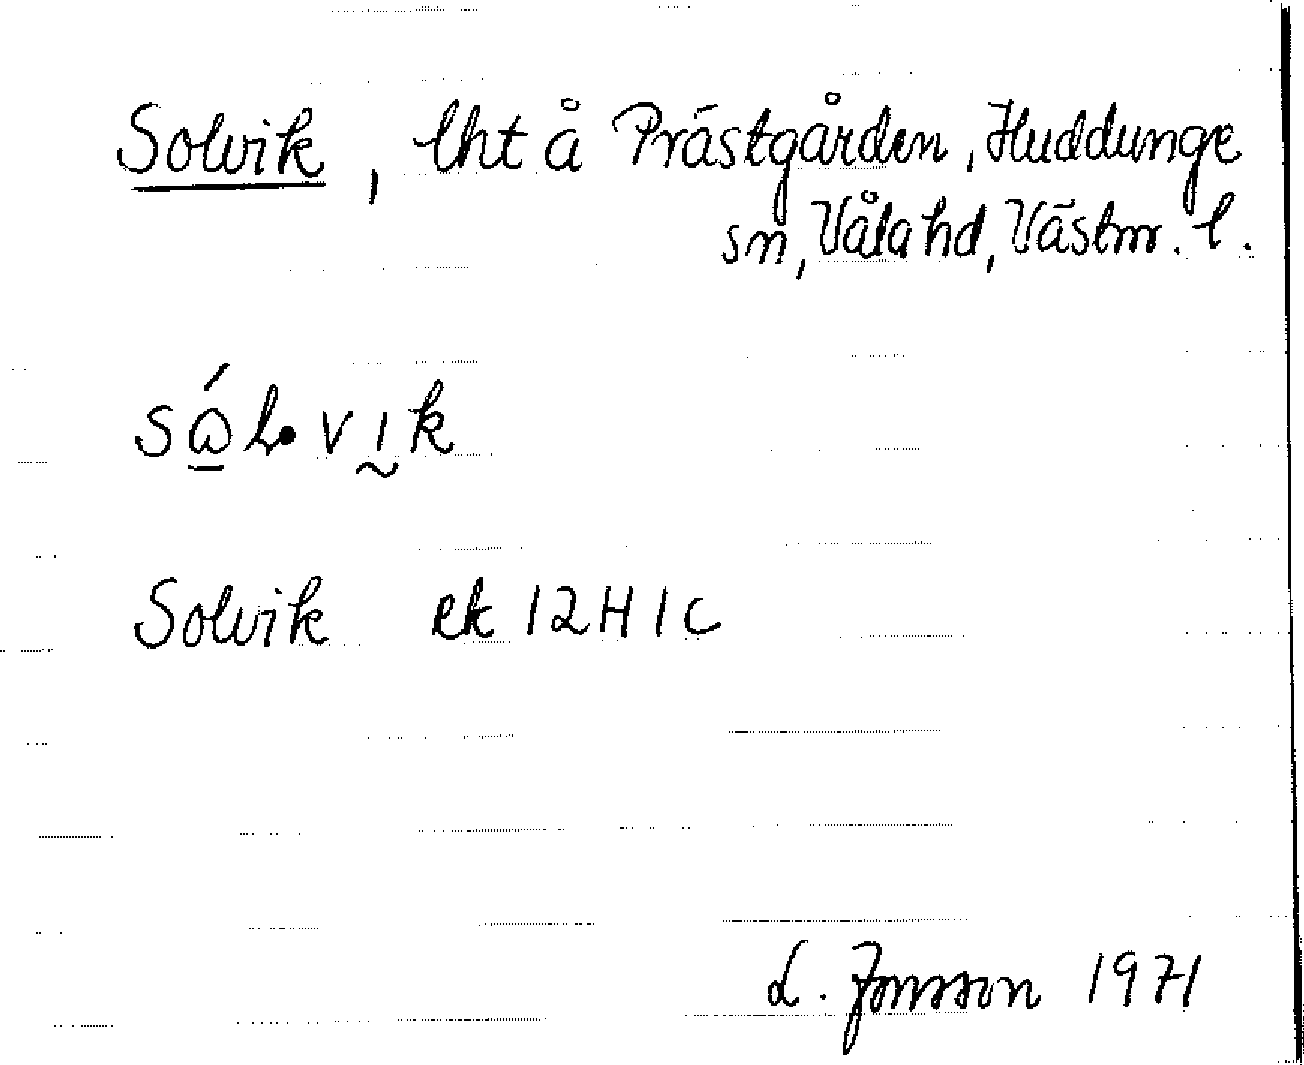 Solvik, lht å Prästgården, Huddunge
sn, Våla hd, Västm. l.
Solvik ek 12H1c
L. Jonsson 1971